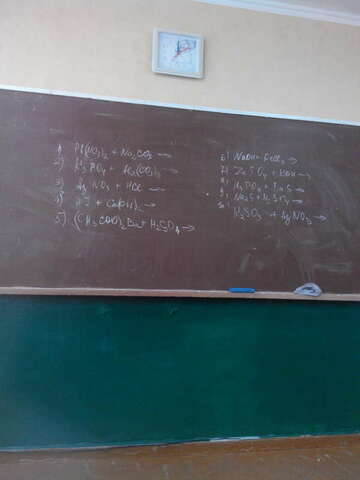 1) Pb(NO3)2 + Na2CO3 →
2) H3PO4 +
3) AgNO3 + HCl →
4) + Ca(OH)2 →
5) (CH3COO)2Ba + H2SO4 →
6) NaOH + FeCl3 →
7) ZnSO4 + KOH →
8) H3PO4 +
9) Na2S + H2SO4 →
10) H2SO3 + AgNO3 →